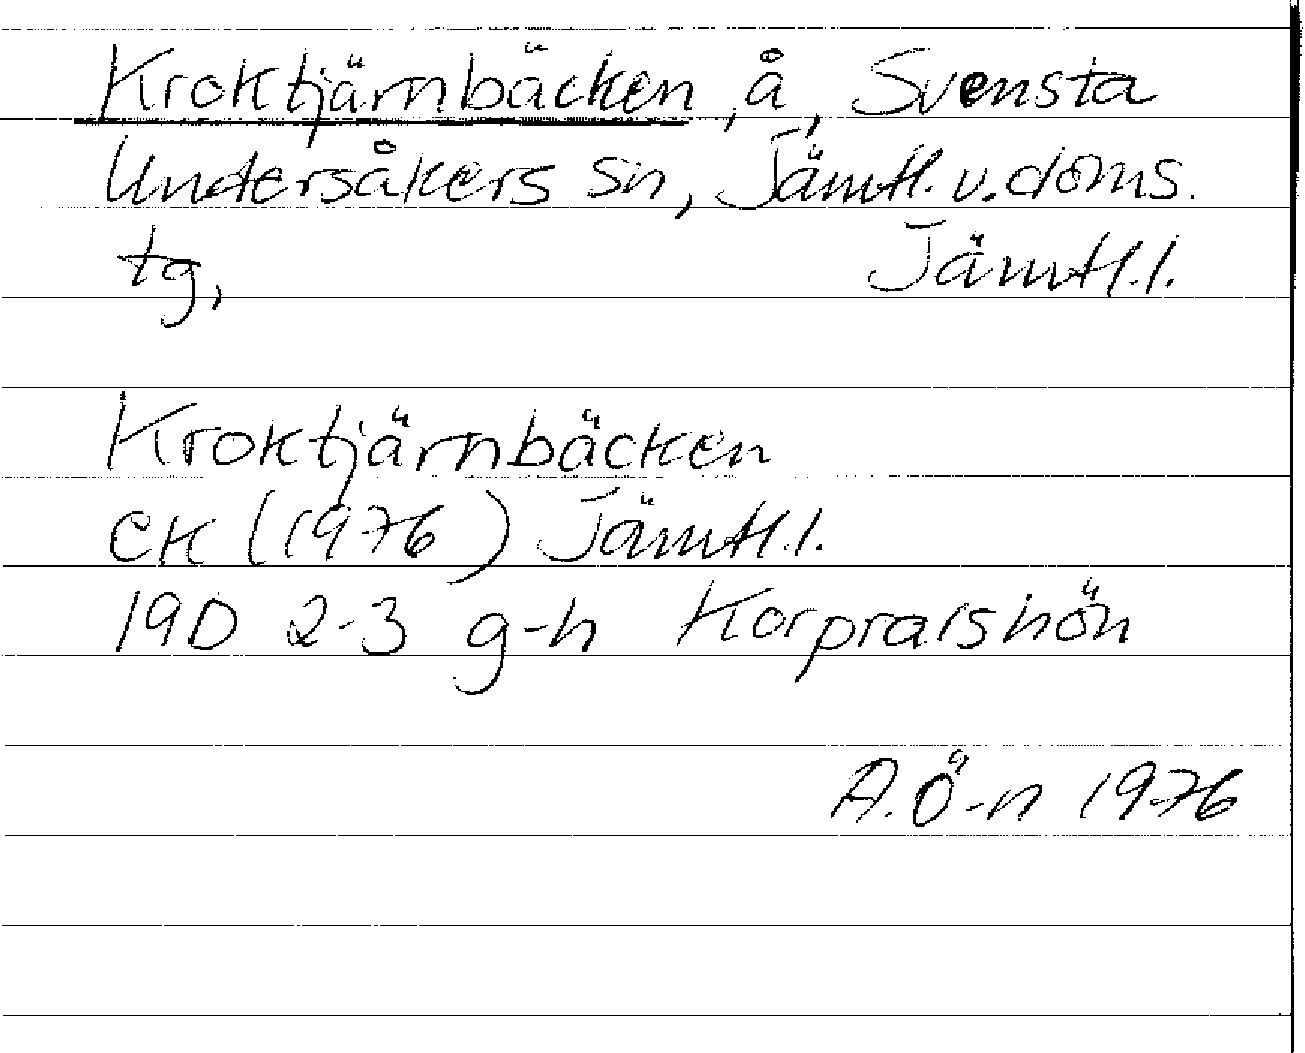 Kroktjärnbäcken, å, Svensta
Undersåkers sn, Jämtl. v. doms.
tg, Jämtl.l.
Kroktjärnbäcken
EK (1976) Jämtl.l.
19D 2-3 g-h Korpralshön
A.Ö-n 1976